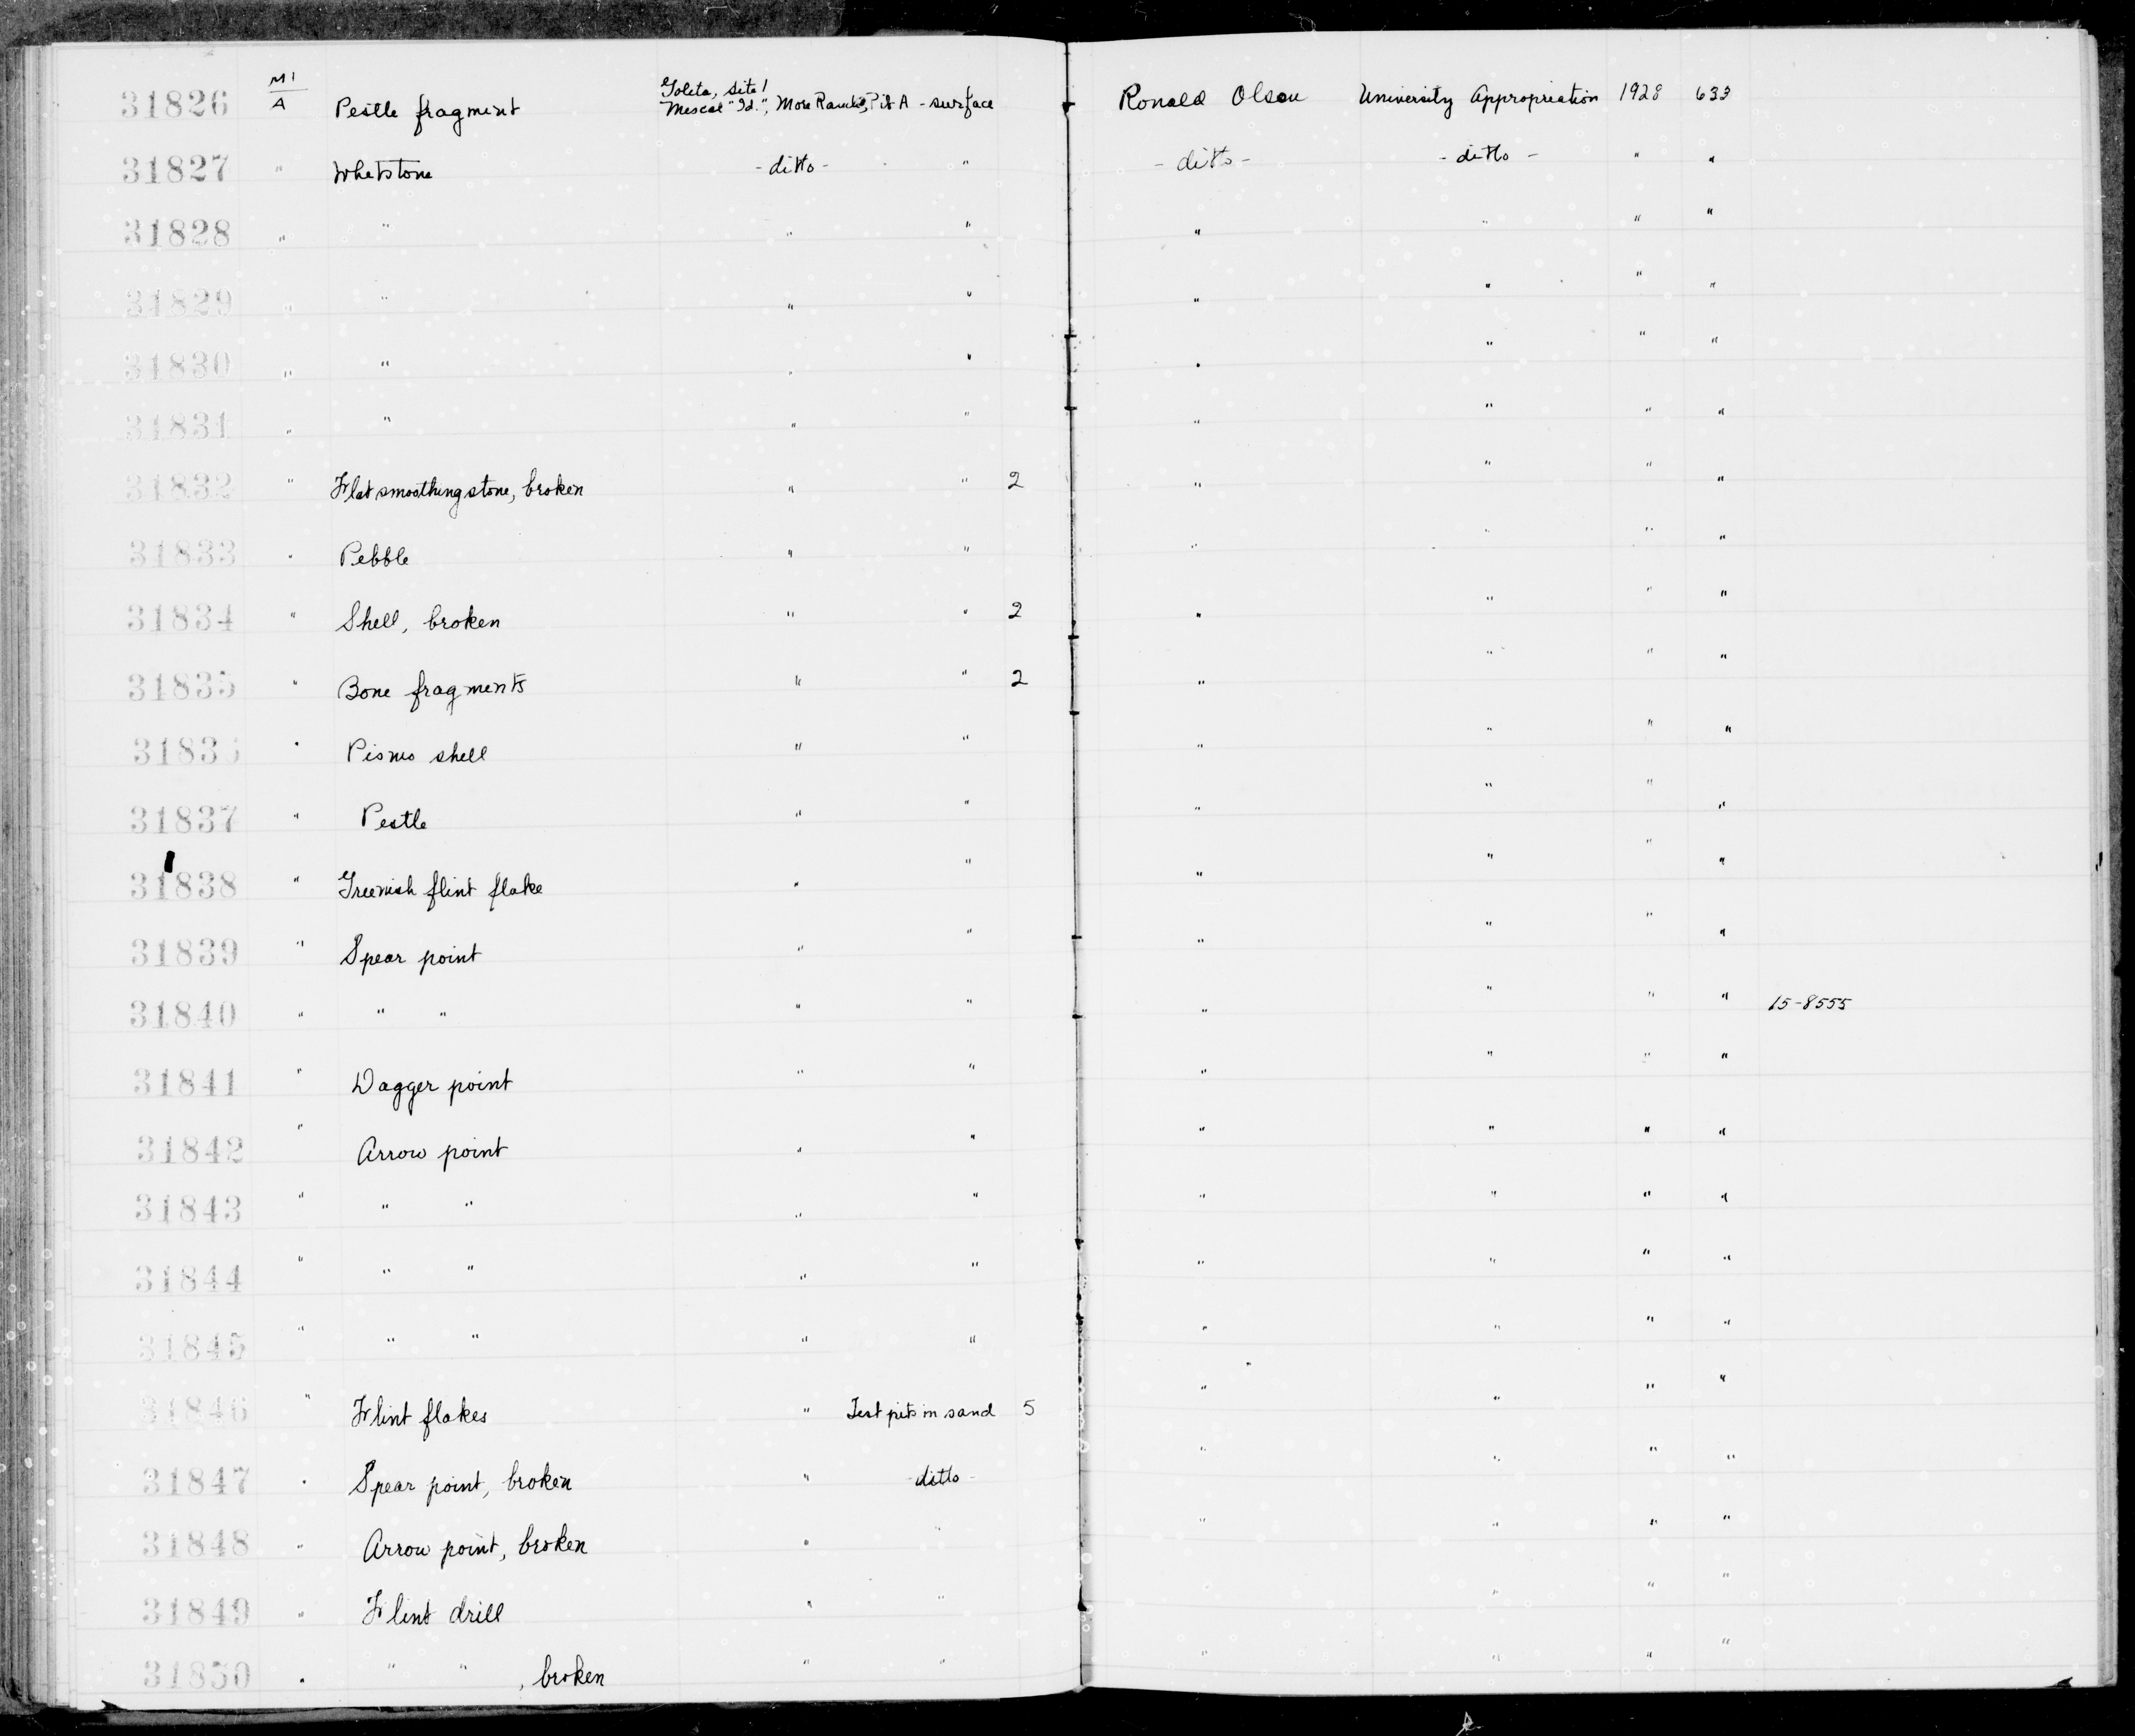 31826 M1/A Pestle fragment Goleta, site 1 "Mescal Id.", More Ranch, Pit A - surface Ronald Olson University Appropriation 1928 633
31827 " Whetstone - ditto - " - ditto - - ditto - " "
31828 " " " " " " " "
31829 " " " " " " " "
31830 " " " " " " " "
31831 " " " " " " " "
31832 " Flat smoothing stone, broken " " 2 " " " "
31833 " Pebble " " " " " "
31834 " Shell, broken " " 2 " " " "
31835 " Bone fragments " " 2 " " " "
31836 " Pismo shell " " " " " "
31837 " Pestle " " " " " "
31838 " Greenish flint flake " " " " " "
31839 " Spear point " " " " " "
31840 " " " " " " " " " 15-8555
31841 " Dagger point " " " " " "
31842 " Arrow point " " " " " "
31843 " " " " " " " " "
31844 " " " " " " " " "
31845 " " " " " " " " "
31846 " Flint flakes " Test pits in sand 5 " " " "
31847 " Spear point, broken " - ditto - " " " "
31848 " Arrow point, broken " " " " " "
31849 " Flint drill " " " " "
31850 " " " , broken " " " " " "